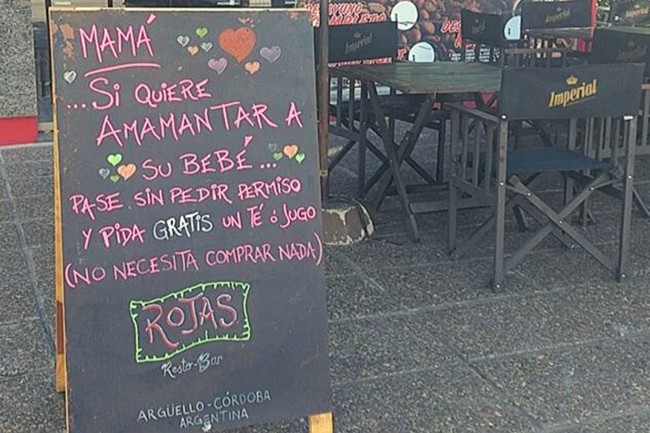 MAMÁ
...SI QUIERE
AMAMANTAR A
SU BEBÉ...
PASE SIN PEDIR PERMISO
Y PIDA GRATIS UN TÉ ó JUGO
(NO NECESITA COMPRAR NADA)
ROJAS
Resto-Bar
ARGÜELLO-CÓRDOBA
ARGENTINA
Imperial
Imperial
Imperial